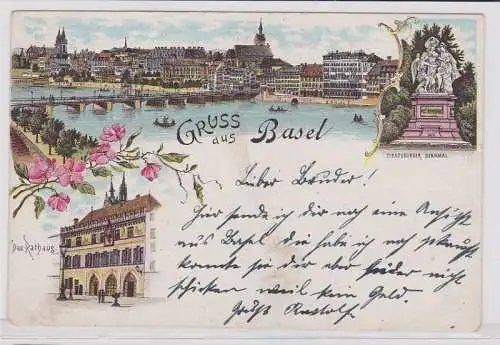 GRUSS
aus
Basel
STRASSBURGER DENKMAL
Das Rathaus
Lieber Bruder!
Hier sende ich dir noch eine Ansicht
aus Basel die habe ich noch gekauft
konnte sie dir aber leider nicht
schicken weil kein Geld.
Gruß Rudolf.